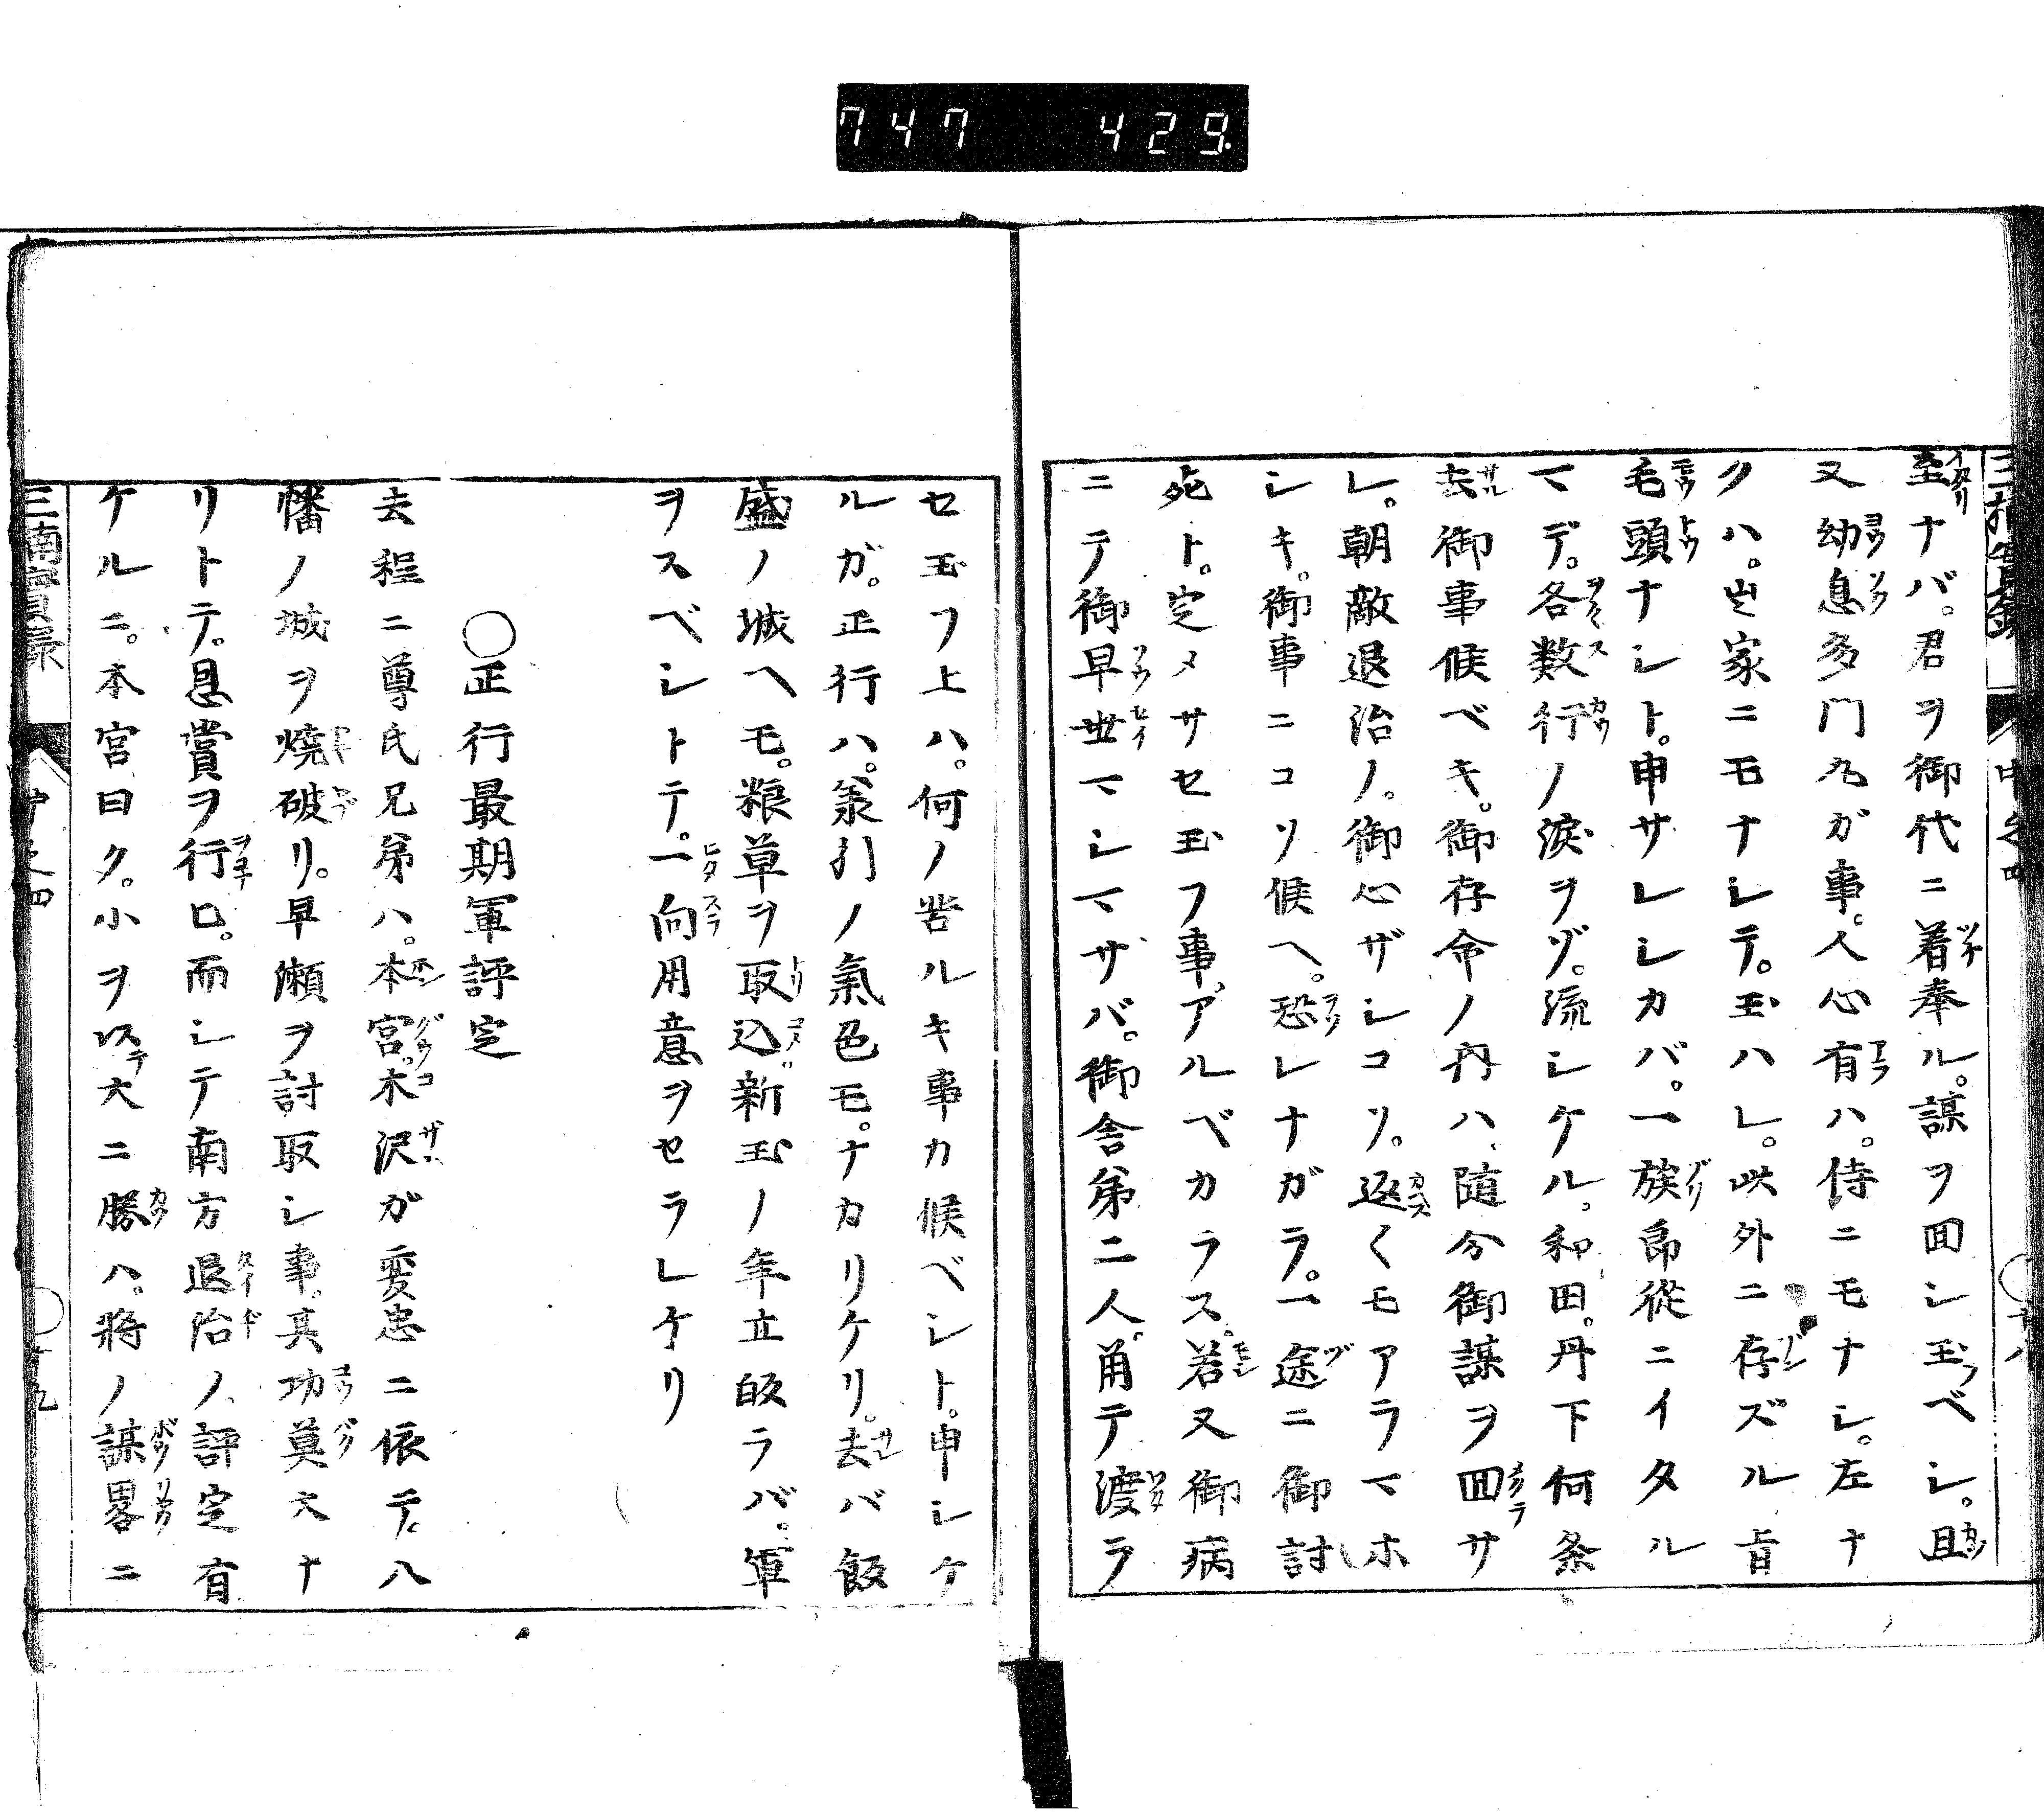 747 429
三楠實錄 中之四 十八
至ナバ。君ヲ御代ニ着奉ル。謀ヲ囬シ玉フベシ。且
又幼息多門丸ガ事。人心有ハ。侍ニモナシ。左ナ
クハ。出家ニモナシテ。玉ハレ。此外ニ存ズル旨
毛頭ナシト。申サレシカバ。一族郎從ニイタル
マデ。各数行ノ淚ヲゾ。流シケル。和田。丹下何条
去御事候ベキ。御存命ノ内ハ、随分御謀ヲ囬サ
レ。朝敵退治ノ。御心ザシコソ。返〱モアラマホ
シキ。御事ニコソ候へ。恐レナガラ。一途ニ御討
死ト。定メサセ玉フ事。アルベカラス。若又御病
ニテ御早世マシマサバ。御舎弟二人。甪テ渡ラ
セ玉フ上ハ。何ノ苦ルキ事カ候ベシト。申シケ
ルガ。正行ハ。承引ノ氣色モ。ナカリケリ。去バ飯
盛ノ城ヘモ。粮草ヲ取込。新玉ノ年立皈ラバ。軍
ヲスベシトテ。一向用意ヲセラレケリ
○正行最期軍評定
去程ニ尊氏兄弟ハ。本宮。木沢ガ変忠ニ依テ。八
幡ノ城ヲ焼破リ。早瀬ヲ討取シ事。其功莫大ナ
リトテ。恩賞ヲ行ロ。而シテ南方退治ノ、評定有
ケルニ。本宮曰ク。小ヲ以テ大ニ勝ハ。將ノ謀畧ニ
三楠實录 中之四 十九